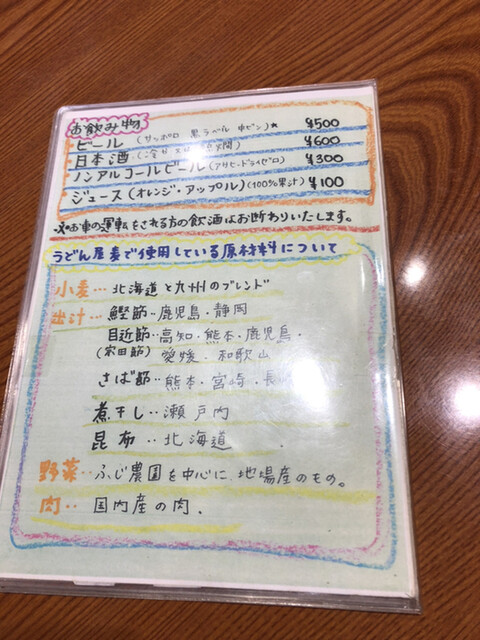 お飲み物
ビール (サッポロ 黒ラベル 中ビン) ¥500
日本酒 ¥600
ノンアルコールビール (アサヒードライゼロ) ¥300
ジュース (オレンジ・アップル) (100%果汁) ¥100
※お車の運転をされる方の飲酒はお断わりいたします。
うどん屋麦で使用している原材料について
小麦… 北海道と九州のブレンド
出汁… 鰹節‥鹿児島・静岡
目近節‥高知・熊本・鹿児島・
(宗田節) 愛媛・和歌山
さば節‥熊本・宮崎・長
煮干し‥瀬戸内
昆布‥北海道
野菜‥ふじ農園を中心に、地場産のもの。
肉‥国内産の肉。